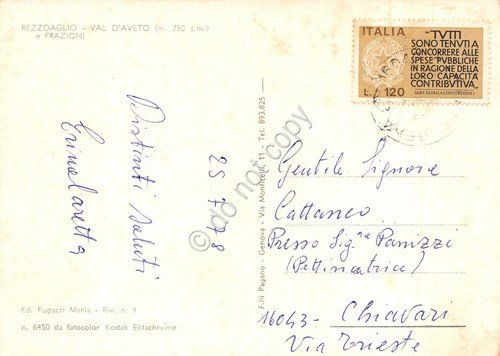 REZZOAGLIO - VAL D'AVETO (m. 750 s.m.)
e FRAZIONI
ITALIA
"TUTTI
SONO TENUTI A
CONCORRERE ALLE
SPESE PUBBLICHE
IN RAGIONE DELLA
LORO CAPACITÀ
CONTRIBUTIVA„
(ART. 53 DELLA COSTITUZIONE)
L. 120
Distinti saluti
25.7.78
F.lli Pagano - Genova - Via Monticelli, 11 - Tel. 893.825
do not copy
Gentile Signora
Cattaneo
Presso Sig.ra Panizzi
(Pettinatrice)
16043 - Chiavari
Via Trieste
Ed. Fugazzi Maria - Riv. n. 4
n. 6450 da fotocolor Kodak Ektachrome